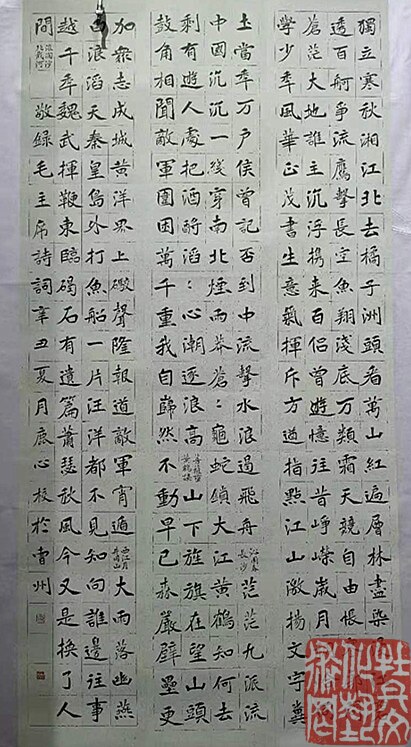 獨立寒秋湘江北去橘子洲頭看萬山紅遍層林盡染
透百舸爭流鷹擊長空魚翔淺底万類霜天競自由悵
蒼茫大地誰主沉浮攜來百侶曾遊憶往昔崢嶸歲月
學少年風華正茂書生意氣揮斥方遒指點江山激揚文字糞
土當年万戶侯曾記否到中流擊水浪遏飛舟沁園春長沙茫茫九派流
中國沉沉一綫穿南北煙雨莽蒼：龜蛇鎖大江黃鶴知何去
剩有遊人處把酒酹滔：心潮逐浪高菩薩蠻黃鶴樓山下旌旗在望山頭
鼓角相聞敵軍圍困萬千重我自巋然不動早已森嚴壁壘更
加衆志成城黃洋界上礮聲隆報道敵軍宵遁西江月井岡山大雨落幽燕
白浪滔天秦皇島外打魚船一片汪洋都不見知向誰邊往事
越千年魏武揮鞭東臨碣石有遺篇蕭瑟秋風今又是換了人
間浪淘沙北戴河敬錄毛主席詩詞辛丑夏月庶心校於曹州